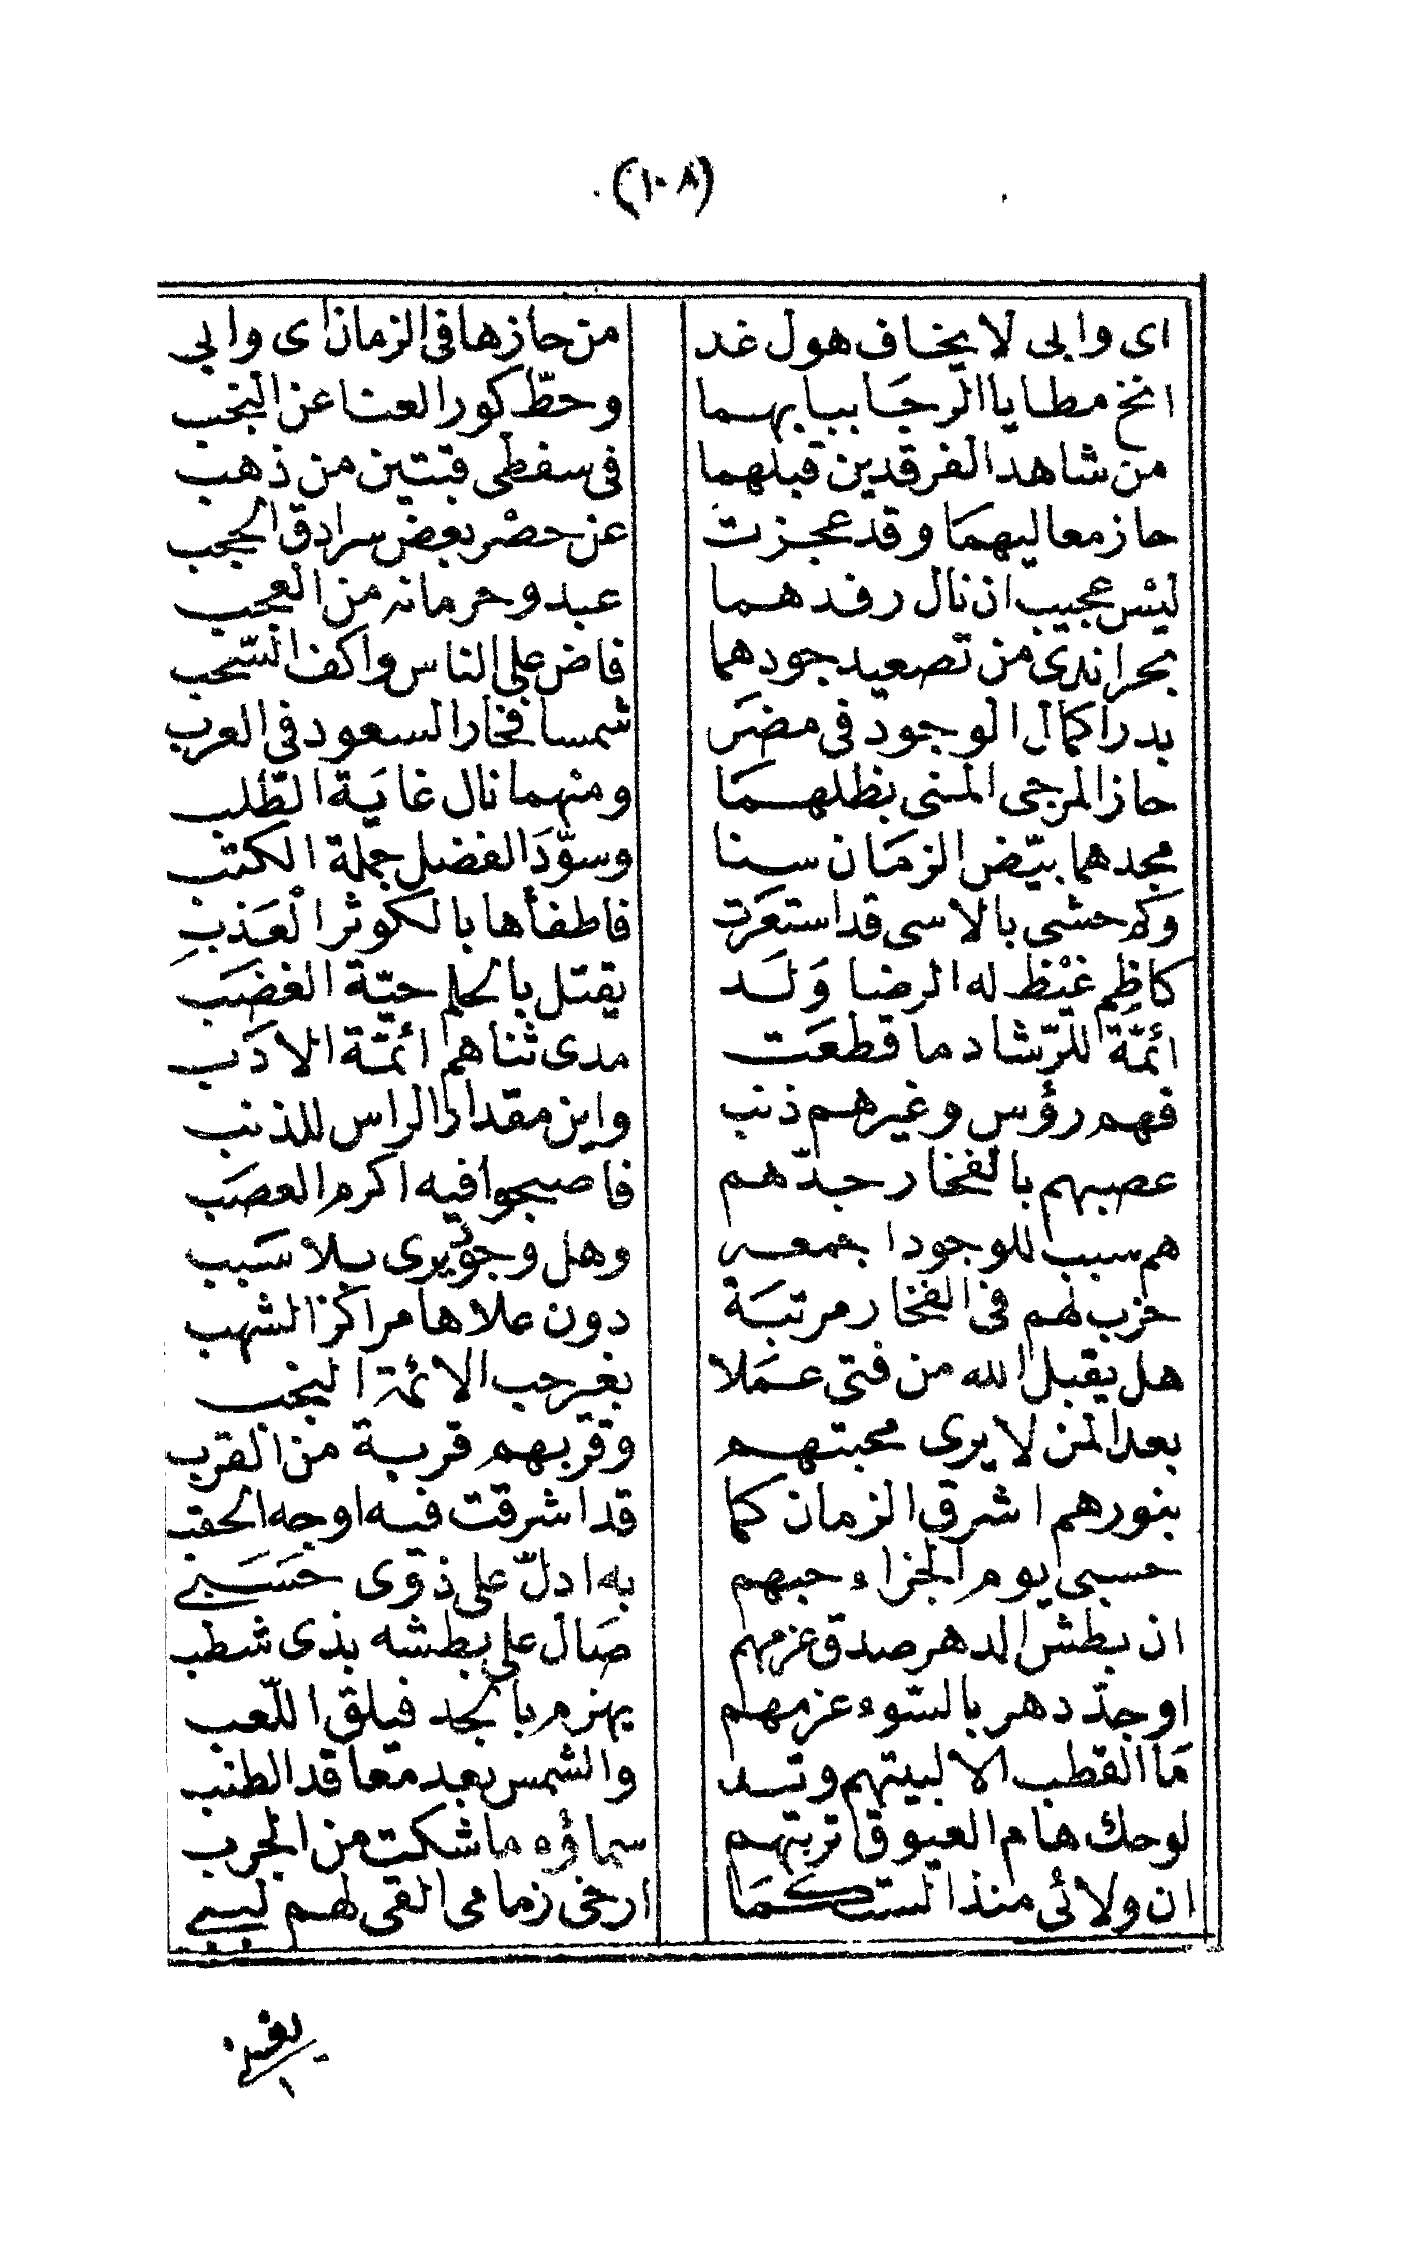 (١٠٨)
اى وابى لا يخاف هول غد من حازها فى الزمان اى وابي
انخ مطايا الرجا ببابهما وحطّ كور العنا عن النجب
من شاهد الفرقدين قبلهما فى سفطى قبتين من ذهب
حاز معاليهمَا وقد عجزت عن حصْر بعض سرادق الحجب
ليْس عجيب ان نال رفدهما عبد وحرمانه من العجب
بحرا ندى من تصعيد جودهما فاض على الناس واكف السّحب
بدرا كمال الوجود فى مضَر شمسا فخار السعود فى العرب
حاز المرجى المنى بظلهمَا ومنهما نال غايَة الطّلب
مجدهما بيّض الزمَان سنا وسوّدَ الفضل جملة الكتب
وكم حشى بالاسى قد استعَرت فاطفأها بالكوثر العَذبِ
كاظِم غيْظ له الرضا وَلَد يقتل بالحلم حيّة الغضَب
ائمّة للرّشاد ما قطعَت مدى ثناهم ائمّة الادَب
فهم رؤس وغيرهم ذنب واين مقدار الراس للذنب
عصبهم بالفخار جدّهم فاصبحوا فيه اكرم العصَب
هم سبب للوجود اجمعه وهل وجود يرى بلا سَبب
حزب لهم فى الفخار مرتبَة دون علاها مراكز الشهب
هل يقبل الله من فتى عمَلا بغير حب الائمة النجب
بعد المن لا يرى محبتهم وقربهم قربة من القرب
بنورهم اشرق الزمان كما قد اشرقت فيه اوجه الحقب
حسبى يوم الجزاء حبهم به ادلّ على ذوى حَسَبي
ان بطش الدهر صدق عزمهم صَال على بطشه بذى شطب
اوجدّ دهر بالسّوء عزمهم يهزم بالجد فيلق اللّعب
مَا القطب الا لبيتهم وتد والشمس بعد معاقد الطنب
لوحك هام العيوق تربتهم سماؤه ما شكت من الجرب
ان ولائى منذ الست كمَا ارخى زمامى القى لهم لببي